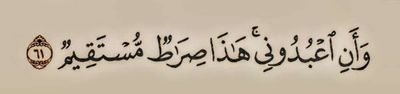 وَأَنِ ٱعْبُدُونِىۚ هَـٰذَا صِرَٰطٌ مُّسْتَقِيمٌ ۝٦١